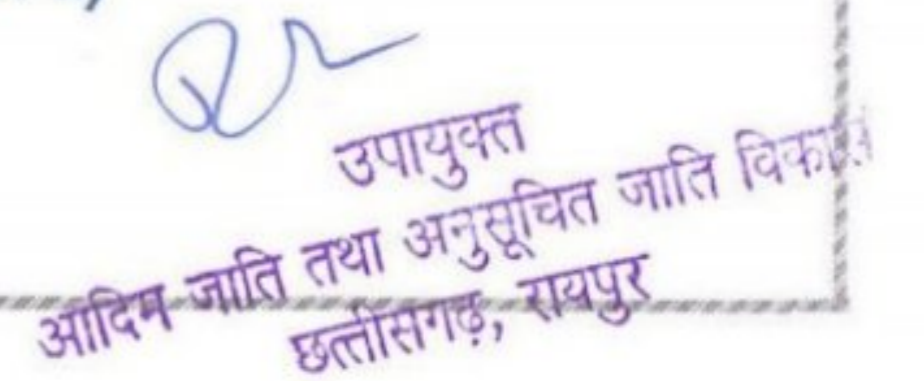 उपायुक्त
आदिम जाति तथा अनुसूचित जाति विकास
छत्तीसगढ़, रायपुर